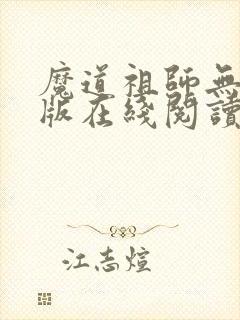 魔道祖師無
版在綫閱讀
江志煊